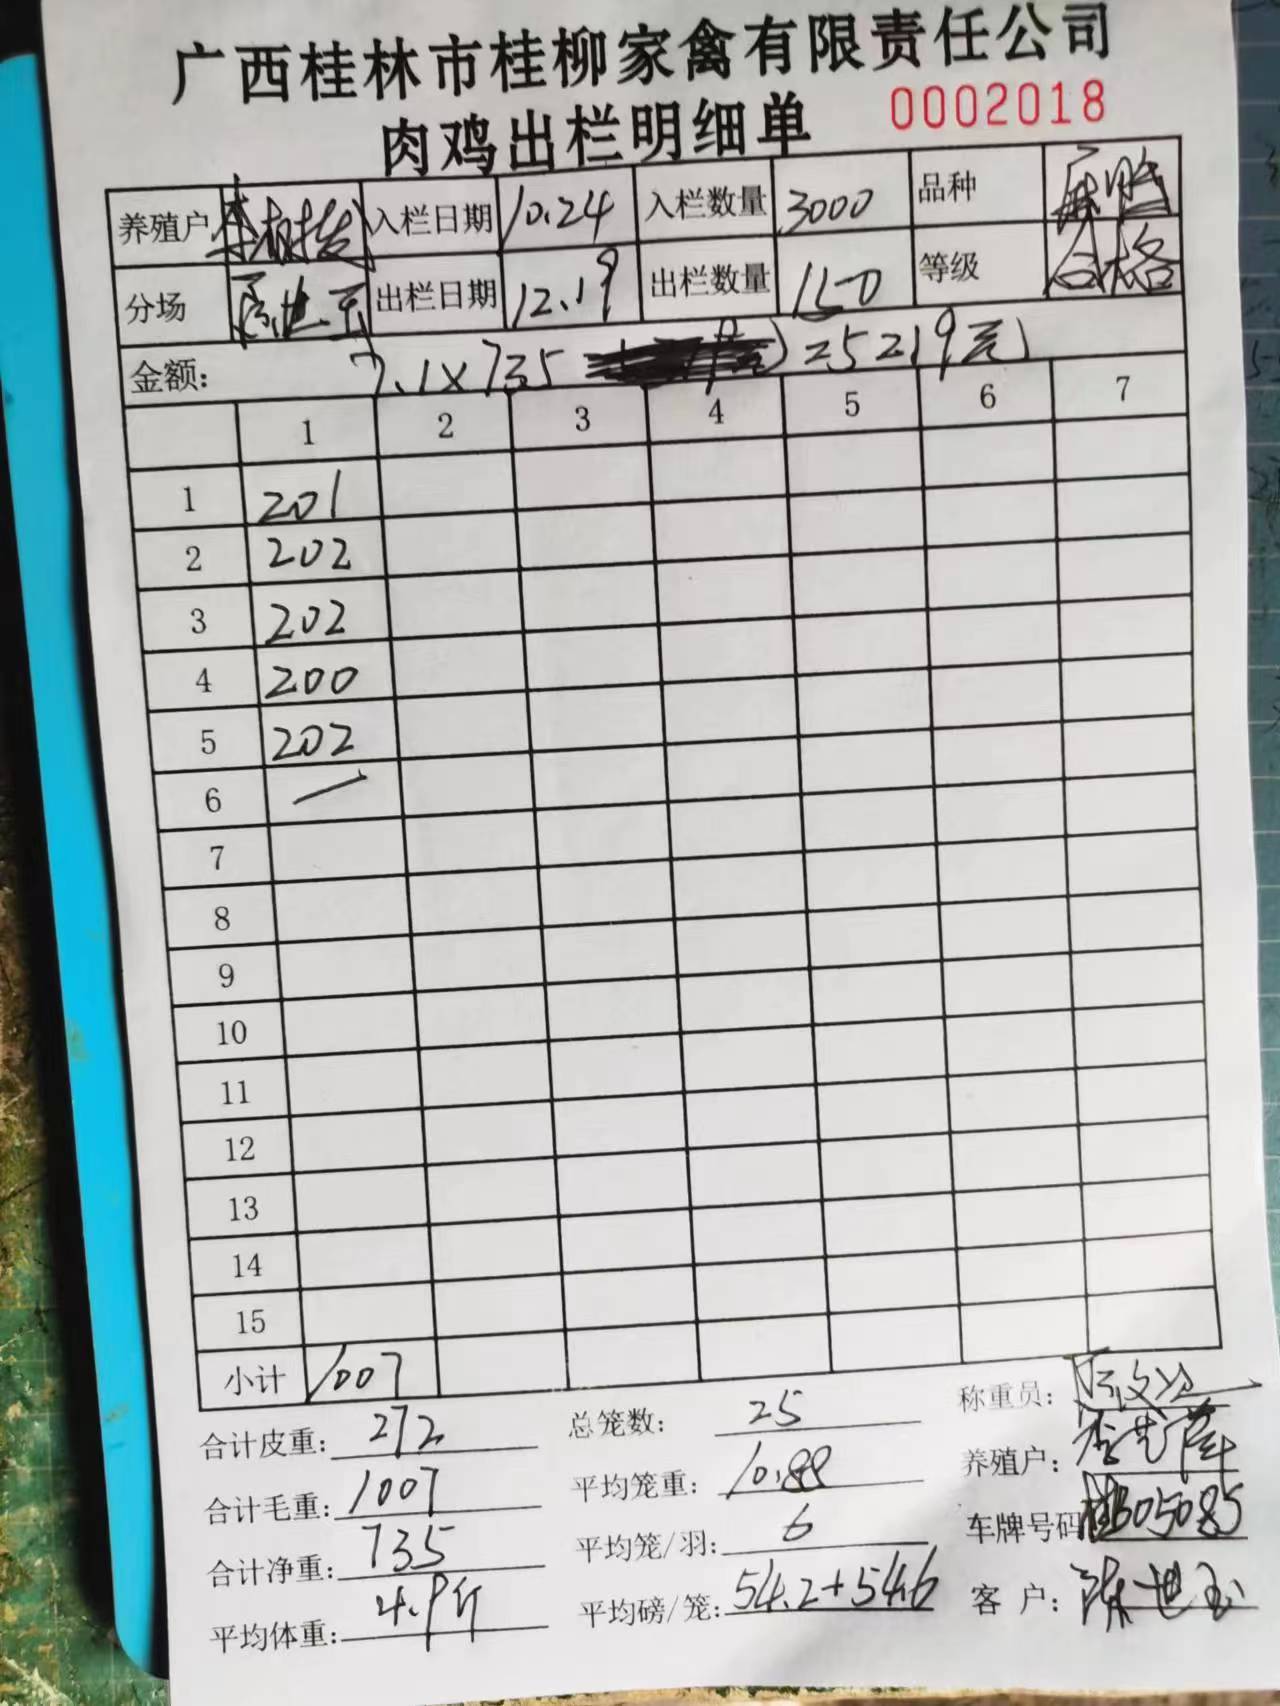 广西桂林市桂柳家禽有限责任公司
肉鸡出栏明细单 0002018
养殖户 入栏日期 10.24 入栏数量 3000 品种 麻鸡
分场 出栏日期 12.19 出栏数量 150 等级 合格
金额: 7.1×735 =5219元
1 2 3 4 5 6 7
1 201
2 202
3 202
4 200
5 202
6
7
8
9
10
11
12
13
14
15
小计 1007
合计皮重: 272 总笼数: 25 称重员:
合计毛重: 1007 平均笼重: 10.88 养殖户:
合计净重: 735 平均笼/羽: 6 车牌号码 桂B05085
平均体重: 4.9斤 平均磅/笼: 54.2+54.6 客户: 陈世玉